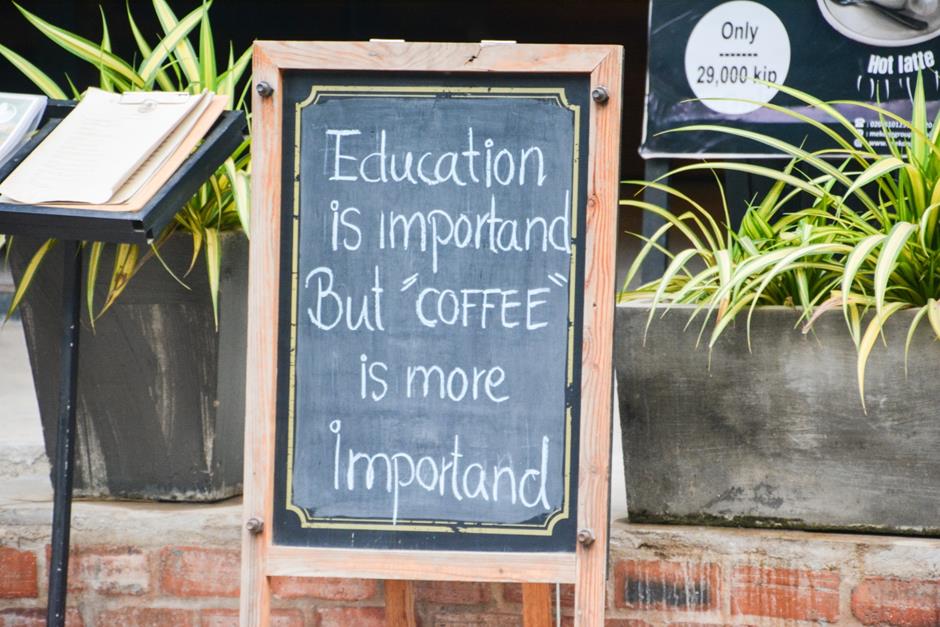 Education
is importand
But "COFFEE"
is more
importand
Only
29,000 kip
Hot latte